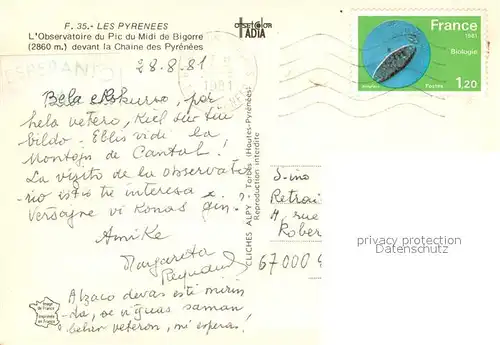 F. 35.- LES PYRENEES
L'Observatoire du Pic du Midi de Bigorre
(2860 m.) devant la Chaine des Pyrénées
OFFSET COLOR
IADIA
France
1981
Biologie
Postes
1,20
ESPERANTO
28.8.81
Bela ekskurso, por
bela vetero, kiel sur tiu
bildo. Eblis vidi la
Montojn de Cantal.
La vizito de la observato
rio estis tre interesa.
vi konas ĝin?
Amike
Margareta
CLICHES ALPY - Tarbes (Hautes-Pyrénées)
Reproduction interdite
S-ino
Retrai
4, rue
Rober
67000
privacy protection
Datenschutz
Alzaco devas esti mirin
da, se vi ĝuas saman
belan veteron, mi esperas!
Image
de France
Imprimée
en France